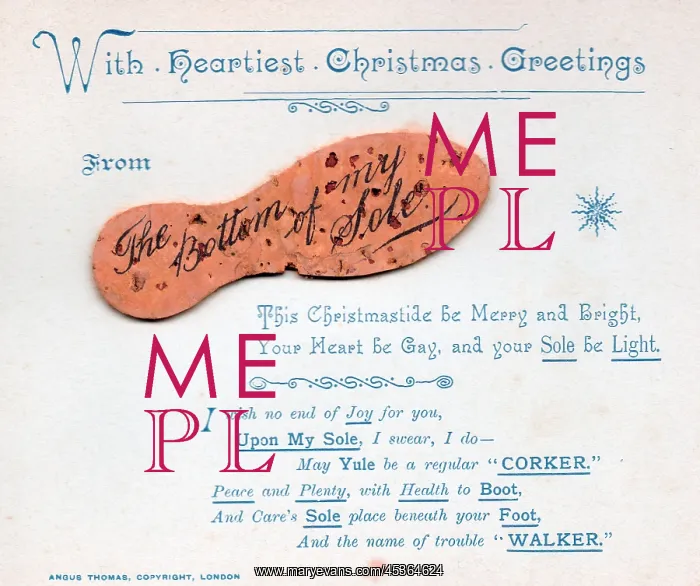 With . Heartiest . Christmas . Greetings
From
The Bottom of my Sole
ME
PL
This Christmastide be Merry and Bright,
Your Heart be Gay, and your Sole be Light.
ME
PL
I wish no end of Joy for you,
Upon My Sole, I swear, I do—
May Yule be a regular "CORKER."
Peace and Plenty, with Health to Boot,
And Care's Sole place beneath your Foot,
And the name of trouble "WALKER."
ANGUS THOMAS, COPYRIGHT, LONDON
www.maryevans.com/45364624